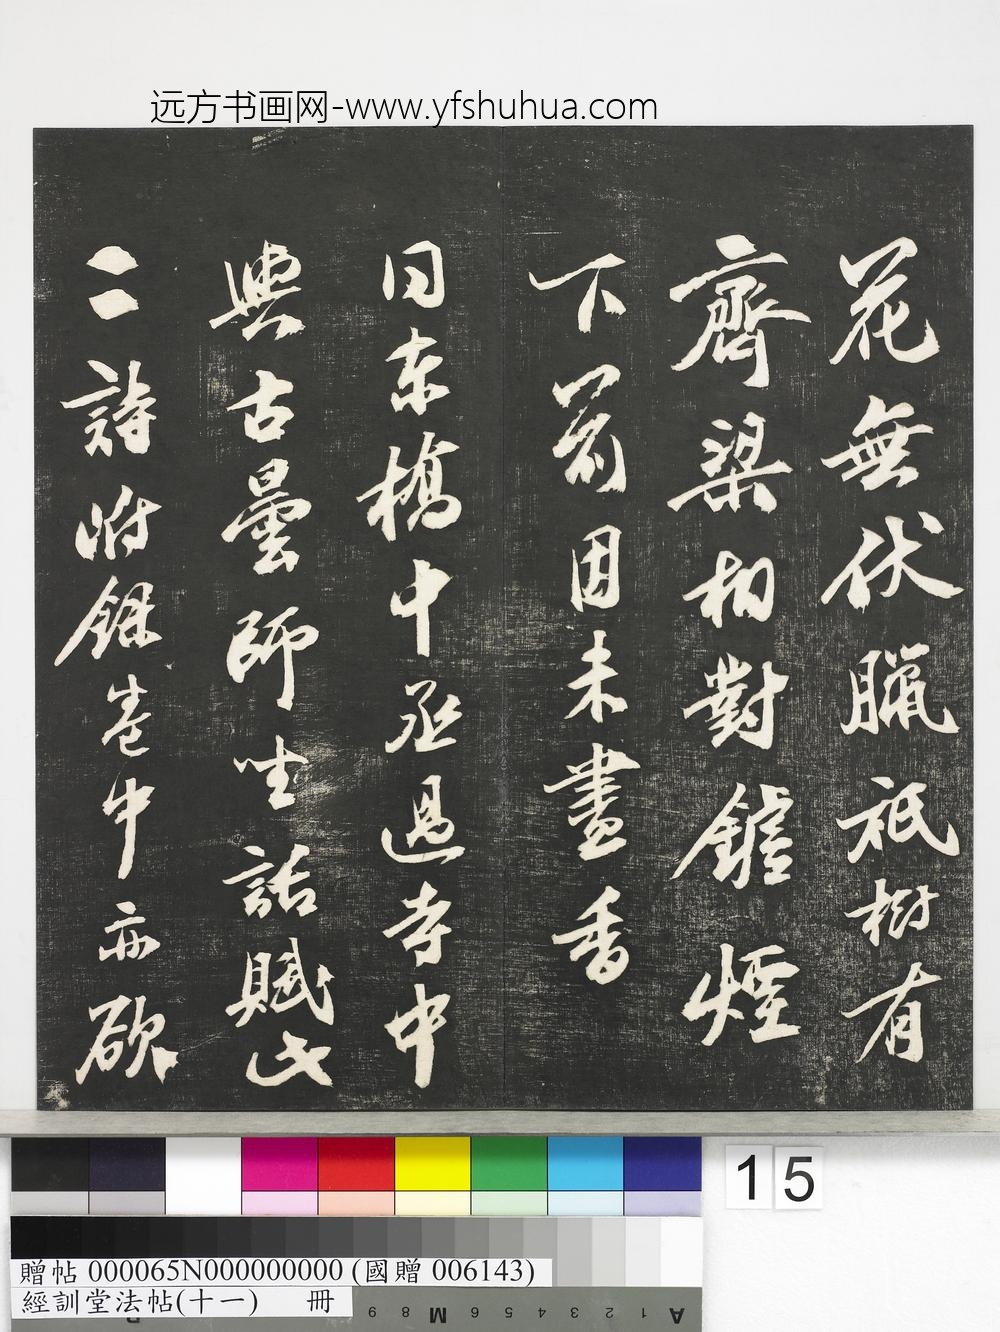 远方书画网-www.yfshuhua.com
花無伏臘祇樹有
齊梁相對鑪煙
下前因未盡香
同東橋中丞過寺中
與古曇師坐話賦此
二詩附錄卷中亦欲
15
贈帖 000065N000000000 (國贈 006143)
經訓堂法帖(十一) 冊
9 8 M 6 5 4 3 2 1 A